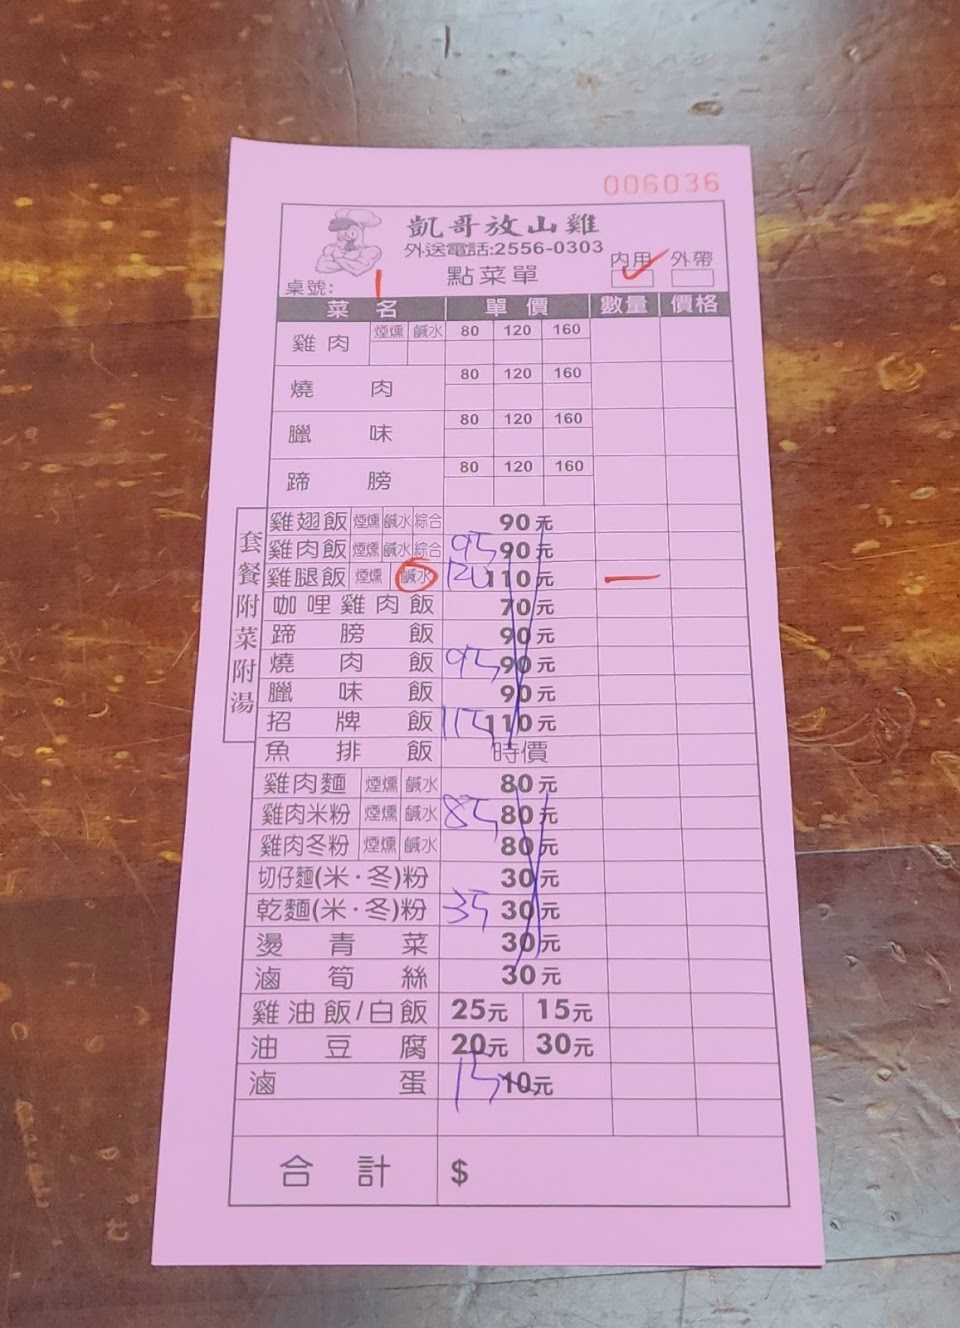 006036
凱哥放山雞
外送電話:2556-0303
點菜單
內用 ✓ 外帶
桌號: 1
菜名 單價 數量 價格
雞肉 煙燻 鹹水 80 120 160
燒肉 80 120 160
臘味 80 120 160
蹄膀 80 120 160
套餐附菜附湯
雞翅飯 煙燻 鹹水 綜合 90元
雞肉飯 煙燻 鹹水 綜合 95 90元
雞腿飯 煙燻 鹹水 120 110元 一
咖哩雞肉飯 70元
蹄膀飯 90元
燒肉飯 95 90元
臘味飯 90元
招牌飯 115 110元
魚排飯 時價
雞肉麵 煙燻 鹹水 80元
雞肉米粉 煙燻 鹹水 85 80元
雞肉冬粉 煙燻 鹹水 80元
切仔麵(米·冬)粉 30元
乾麵(米·冬)粉 35 30元
燙青菜 30元
滷筍絲 30元
雞油飯/白飯 25元 15元
油豆腐 20元 30元
滷蛋 15 10元
合計 $